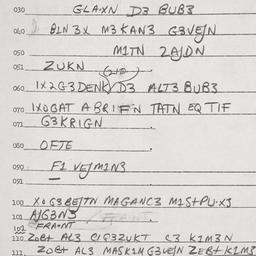 030 GLAXN D3 BUB3
040 BIN 3X M3KAN3 G3VEJN
050 MITN 2AJDN
051 ZUKN (2IF)
060 1X2G3DENK/D3 ALT3 BUB3
070 1X0GAT A BRIFN TATN EQ TIF
071 G3KRIGN
080 OFTE
090 F1 VEJM1N3
091
100 X0 G3BEJTN MAGANC3 M1ST+PU.X3
101 AJG3N3 FRANT
102 FRANT
110 ZOB+ AL3 C1G3ZUKT C3 K1M3N
111 ZOB+ AL3 MASK1M G3VEJN ZEB+ K1M3